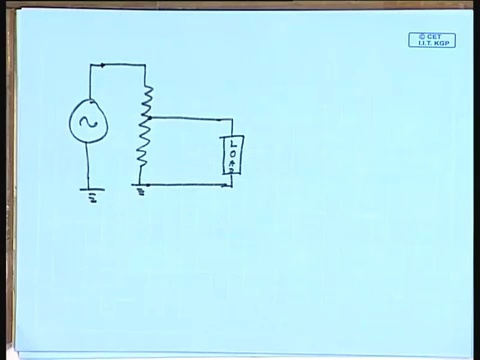 © CET
I.I.T. KGP
L
O
A
D